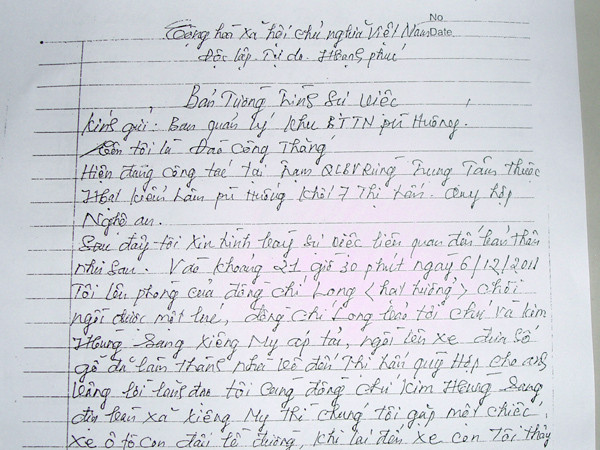 No
Cộng hoà xã hội chủ nghĩa Việt Nam Date
Độc lập - Tự do - Hạnh phúc
Bản Tường trình sự việc
Kính gửi: Ban quản lý khu BTTN pù Huống.
Tên tôi là Đào Công Thắng
Hiện đang công tác tại trạm QLBVRừng Trung Tâm thuộc
Hạt kiểm lâm pù Huống khối 7 Thị trấn. Quỳ hợp
Nghệ an.
Sau đây tôi xin trình bày sự việc liên quan đến bản thân
như sau. Vào khoảng 21 giờ 30 phút ngày 6/12/2011
Tôi lên phòng của đồng chí Long <hạt trưởng> chơi
ngồi được một lúc, đồng chí Long bảo tôi chú và kim
Hưng sang xiềng My áp tải, ngồi lên xe đưa số
gỗ đã làm thành nhà về đến Thị trấn quỳ Hợp cho anh
Vâng lời lãnh đạo tôi cùng đồng chí kim Hưng sang
đến xã xiềng My thì chúng tôi gặp một chiếc
xe ô tô con đậu lề đường, khi lại đến xe con tôi thấy